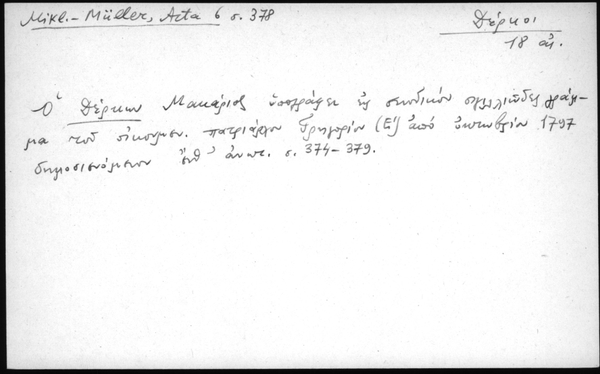 Mikl.-Müller, Acta 6 σ. 378
Δέρκοι
18 αἰ.
Ὁ Δέρκων Μακάριος ὑπογράφει εἰς συνοδικὸν σιγιλλιῶδες γράμ-
μα τοῦ οἰκουμεν. πατριάρχου Γρηγορίου (Ε′) ἀπό ὀκτωβρίου 1797
δημοσιευόμενον ἔνθ' ἀνωτ. σ. 374-379.